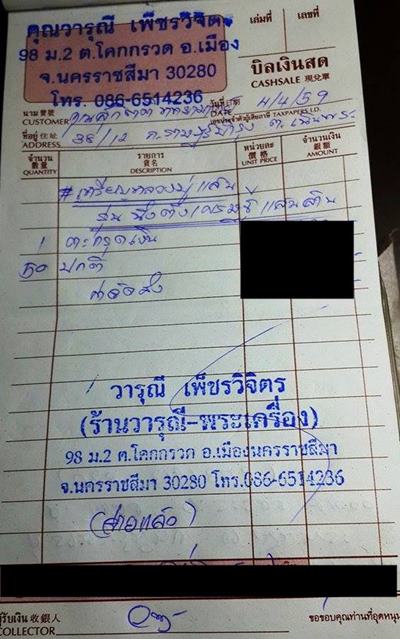 คุณวารุณี เพ็ชรวิจิตร
98 ม.2 ต.โคกกรวด อ.เมือง
จ.นครราชสีมา 30280
โทร. 086-6514236
เล่มที่ เลขที่
บิลเงินสด
CASHSALE 現兌單
นาม 寶號
CUSTOMER
วันที่ 日期
DATE 4/4/59
ที่อยู่ 住址
ADDRESS 38/12
เลขประจำตัวผู้เสียภาษี TAXPAYERS I.D.
จำนวน 數量 QUANTITY
รายการ 貨名 DESCRIPTION
หน่วยละ 價格 UNIT PRICE
จำนวนเงิน 銀額 AMOUNT
# เหรียญหลวงปู่แสน
รุ่น
1 ตะกรุดเงิน
50 ปกติ
วารุณี เพ็ชรวิจิตร
(ร้านวารุณี-พระเครื่อง)
98 ม.2 ต.โคกกรวด อ.เมืองนครราชสีมา
จ.นครราชสีมา 30280 โทร.086-6514236
ผู้รับเงิน 收銀人
COLLECTOR
ขอขอบคุณท่านที่อุดหนุน